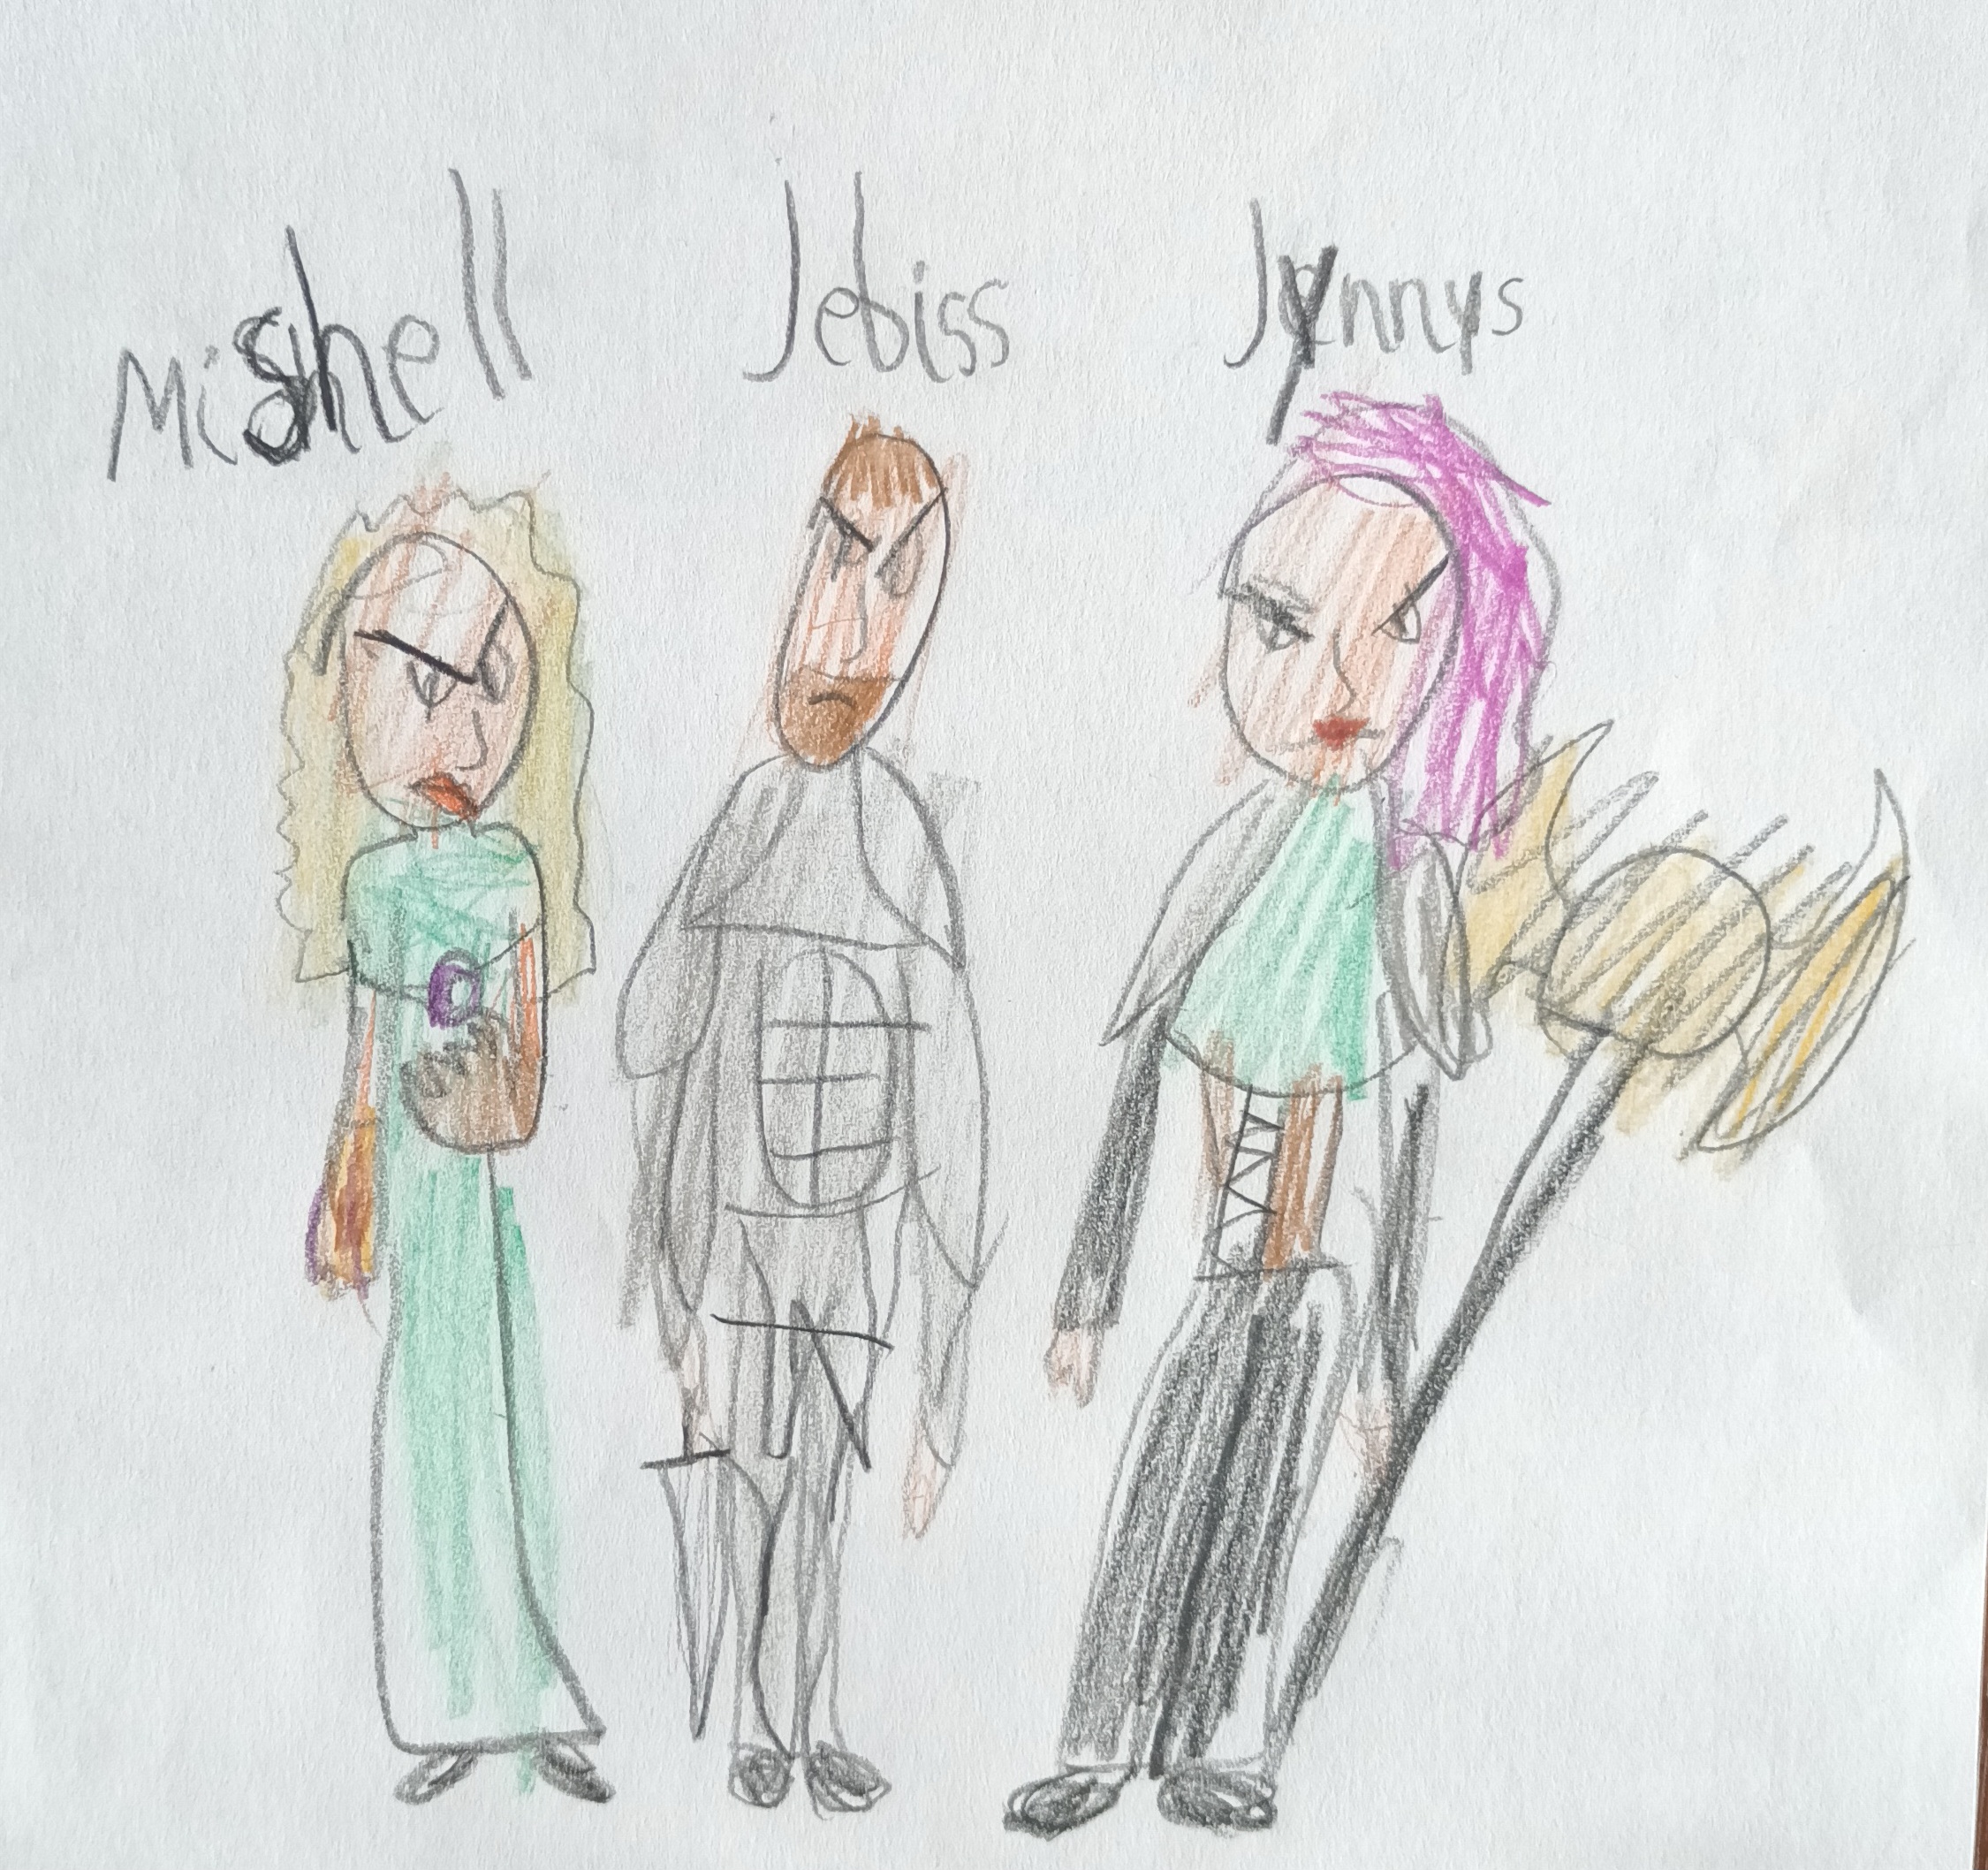 Mishell Jebiss Jynnys